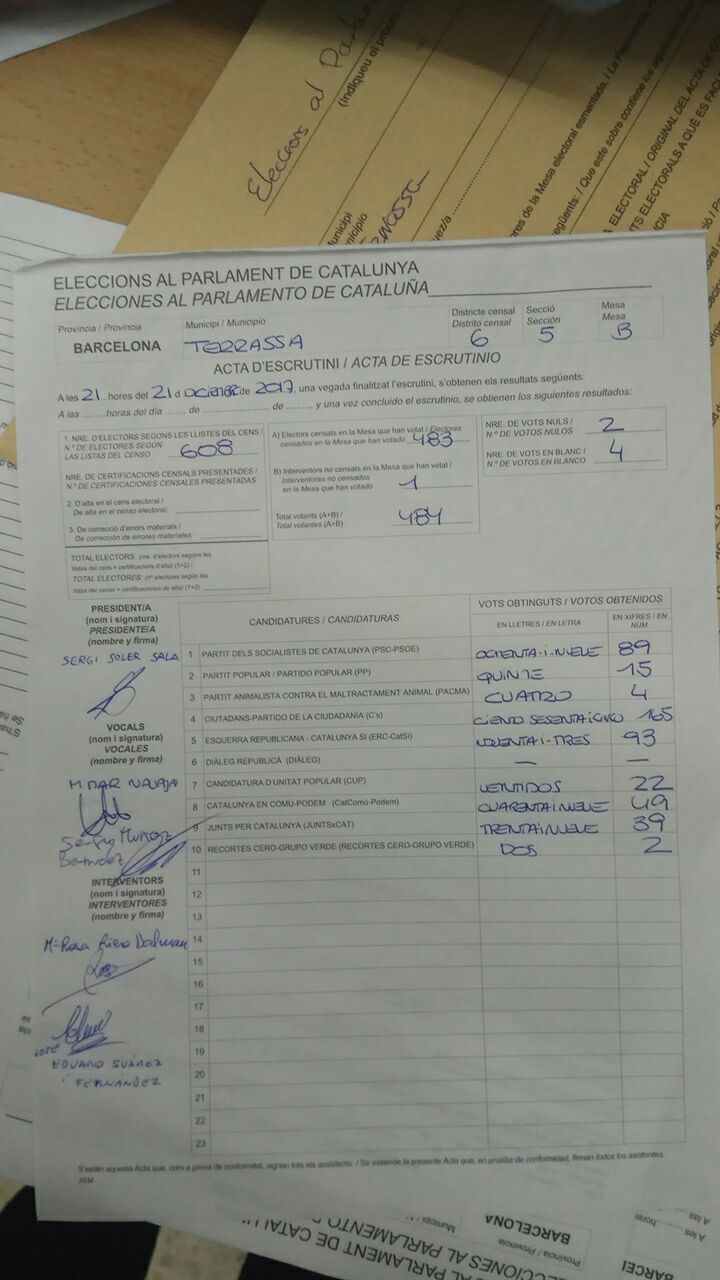 Eleccions al Parlam
(Indiqueu el procés /
ELECCIONS AL PARLAMENT DE CATALUNYA
ELECCIONES AL PARLAMENTO DE CATALUÑA
Provincia / Provincia
Municipi / Municipio
Districte censal
Distrito censal
Secció
Sección
Mesa
Mesa
BARCELONA TERRASSA 6 5 B
ACTA D'ESCRUTINI / ACTA DE ESCRUTINIO
A les 21 hores del 21 d de 2017, una vegada finalitzat l'escrutini, s'obtenen els resultats següents:
A las ........ horas del día ....... de ........................ de ........, y una vez concluido el escrutinio, se obtienen los siguientes resultados:
1. NRE. D'ELECTORS SEGONS LES LLISTES DEL CENS /
N.º DE ELECTORES SEGÚN
LAS LISTAS DEL CENSO 608
NRE. DE CERTIFICACIONS CENSALS PRESENTADES /
N.º DE CERTIFICACIONES CENSALES PRESENTADAS
2. D'alta en el cens electoral /
De alta en el censo electoral:
3. De correcció d'errors materials /
De corrección de errores materiales:
TOTAL ELECTORS: (nre. d'electors segons les
llistes del cens + certificacions d'alta) (1+2) /
TOTAL ELECTORES: (nº electores según las
listas del censo + certificaciones de alta) (1+2)
A) Electors censats en la Mesa que han votat / Electores
censados en la Mesa que han votado 483
B) Interventors no censats en la Mesa que han votat /
Interventores no censados
en la Mesa que han votado 1
Total votants (A+B) /
Total votantes (A+B) 484
NRE. DE VOTS NULS /
N.º DE VOTOS NULOS 2
NRE. DE VOTS EN BLANC /
N.º DE VOTOS EN BLANCO 4
PRESIDENT/A
(nom i signatura)
PRESIDENTE/A
(nombre y firma)
SERGI SOLER SALA
VOCALS
(nom i signatura)
VOCALES
(nombre y firma)
INTERVENTORS
(nom i signatura)
INTERVENTORES
(nombre y firma)
EDUARD SUÁREZ
FERNÁNDEZ
CANDIDATURES / CANDIDATURAS
VOTS OBTINGUTS / VOTOS OBTENIDOS
EN LLETRES / EN LETRA
EN XIFRES / EN NÚM
1 PARTIT DELS SOCIALISTES DE CATALUNYA (PSC-PSOE) 89
2 PARTIT POPULAR / PARTIDO POPULAR (PP) QUINTE 15
3 PARTIT ANIMALISTA CONTRA EL MALTRACTAMENT ANIMAL (PACMA) CUATRO 4
4 CIUTADANS-PARTIDO DE LA CIUDADANÍA (C's) 165
5 ESQUERRA REPUBLICANA - CATALUNYA SI (ERC-CatSI) NOVENTA i-TRES 93
6 DIÀLEG REPUBLICÀ (DIÀLEG) — —
7 CANDIDATURA D'UNITAT POPULAR (CUP) 22
8 CATALUNYA EN COMÚ-PODEM (CatComú-Podem) 49
9 JUNTS PER CATALUNYA (JUNTSxCAT) 39
10 RECORTES CERO-GRUPO VERDE (RECORTES CERO-GRUPO VERDE) DOS 2
11
12
13
14
15
16
17
18
19
20
21
22
23
S'estén aquesta Acta que, com a prova de conformitat, signen tots els assistents. / Se extiende la presente Acta que, en prueba de conformidad, firman todos los asistentes.